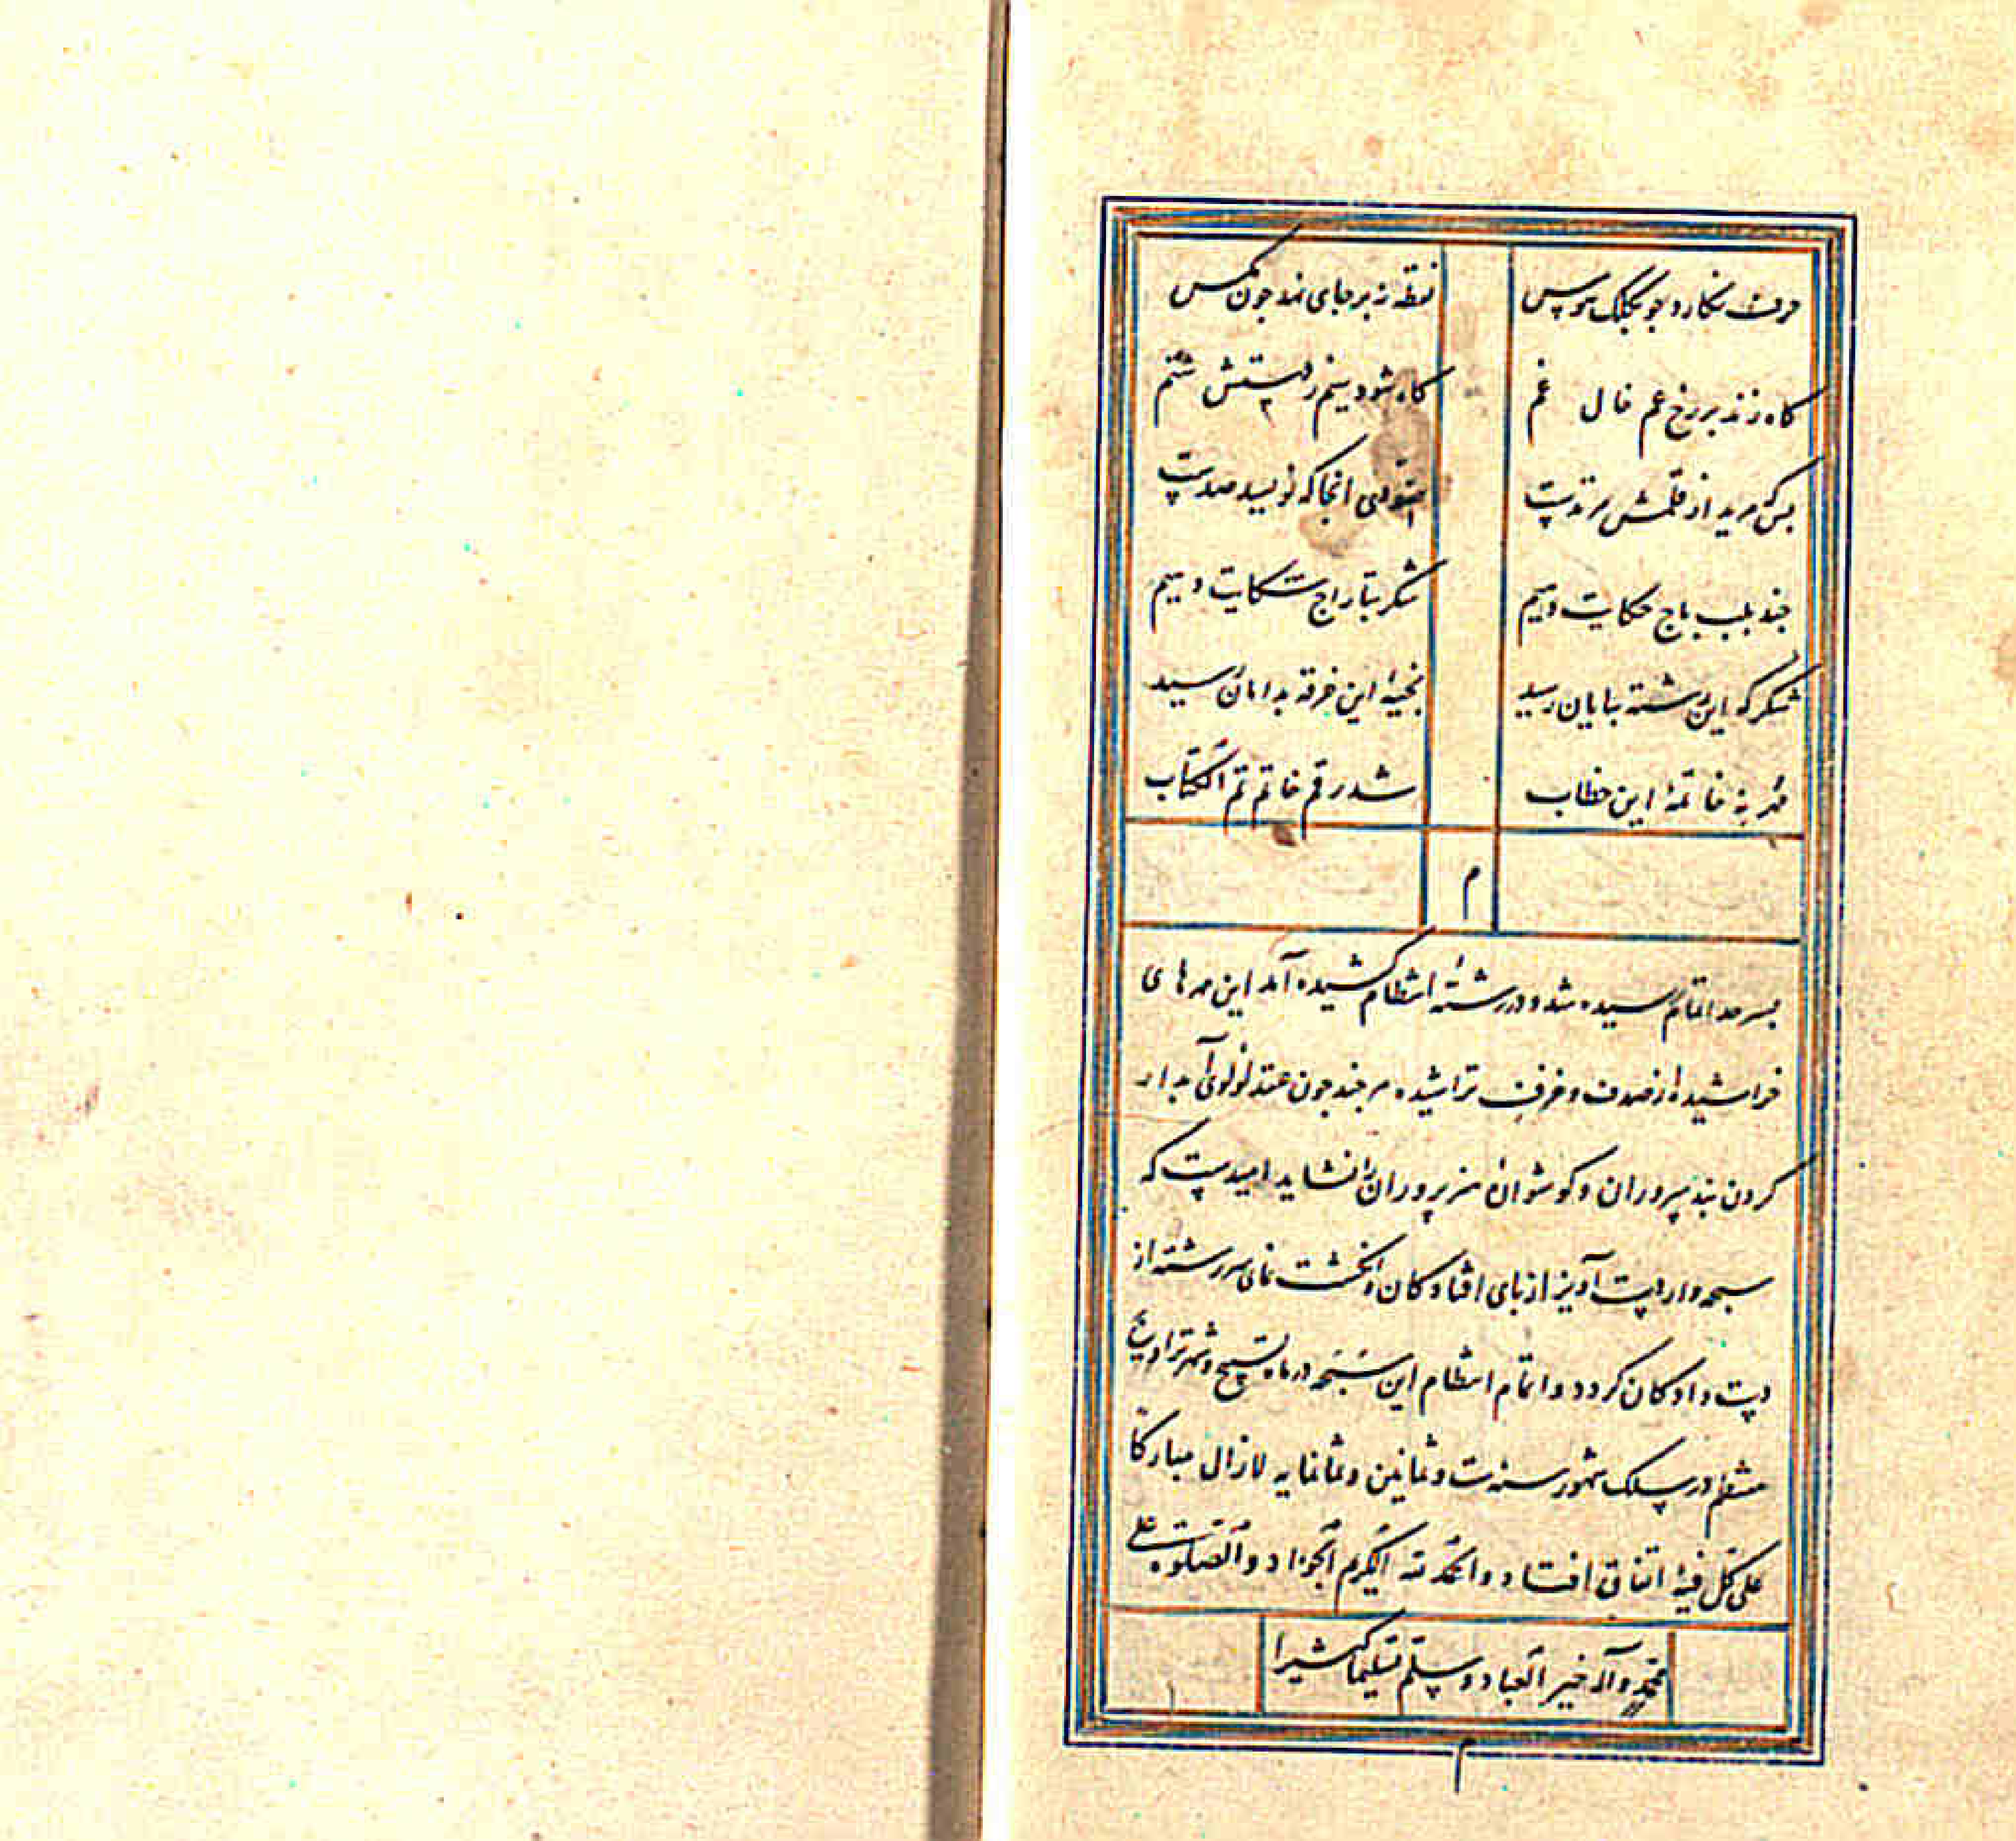 حرف نکارد چو بکلک هوس نقطه نه بر جای نهد چون مکس
کاه زند بر رخ عم خال غم کاه شود سیم ز دستش ستم
بس که مرید از قلمش مرتدست مفتوی انجا که نویسد صدست
چند بلب باج حکایت دهیم شکر بتاراج شکایت دهیم
شکر که این رشته بپایان رسید بخیهٔ این خرقه بدامان رسید
مهر نه خاتمهٔ این خطاب شد رقم خاتم تم الکتاب
م
بسر حد اتمام رسیده شد و در رشتهٔ انتظام کشیده آمد این مهرهای
خراشیده از صدف و خزف تراشیده هر چند چون عقد لولوی آبدار
کردن بند سروران و کوشوارهٔ هنرپروران را نشاید امیدست که
سبحه وار دست آویز از پای افتادکان و انکشت نمای سررشته از
دست دادکان کردد و اتمام انتظام این سبحه در ماه تسبیح و شهر تراویح
منتظم در سلک شهور سنه ست و ثمانین و ثمانمایه لازال مبارکا
علی کل فیه اتفاق افتاد و الحمد لله الکریم الجواد و الصلوة علی
محمد و آله خیر العباد و سلم تسلیما کثیرا
م